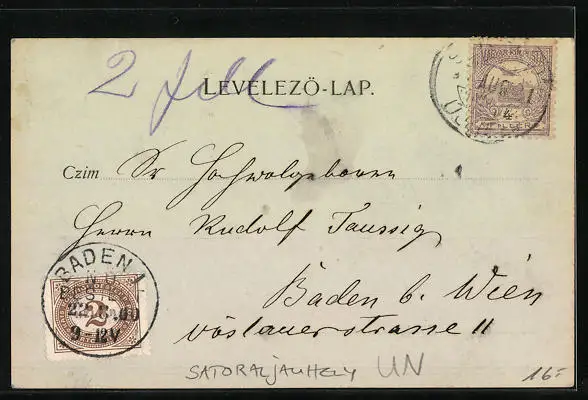 2 fill
LEVELEZŐ-LAP.
AUG
4
Czim Sr Hochwolgeboren
Herrn Rudolf Taussig
Baden b. Wien
Vöslauerstrasse 11
BADEN 1
2
9-12V
SATORALJAUHELY UN
16=